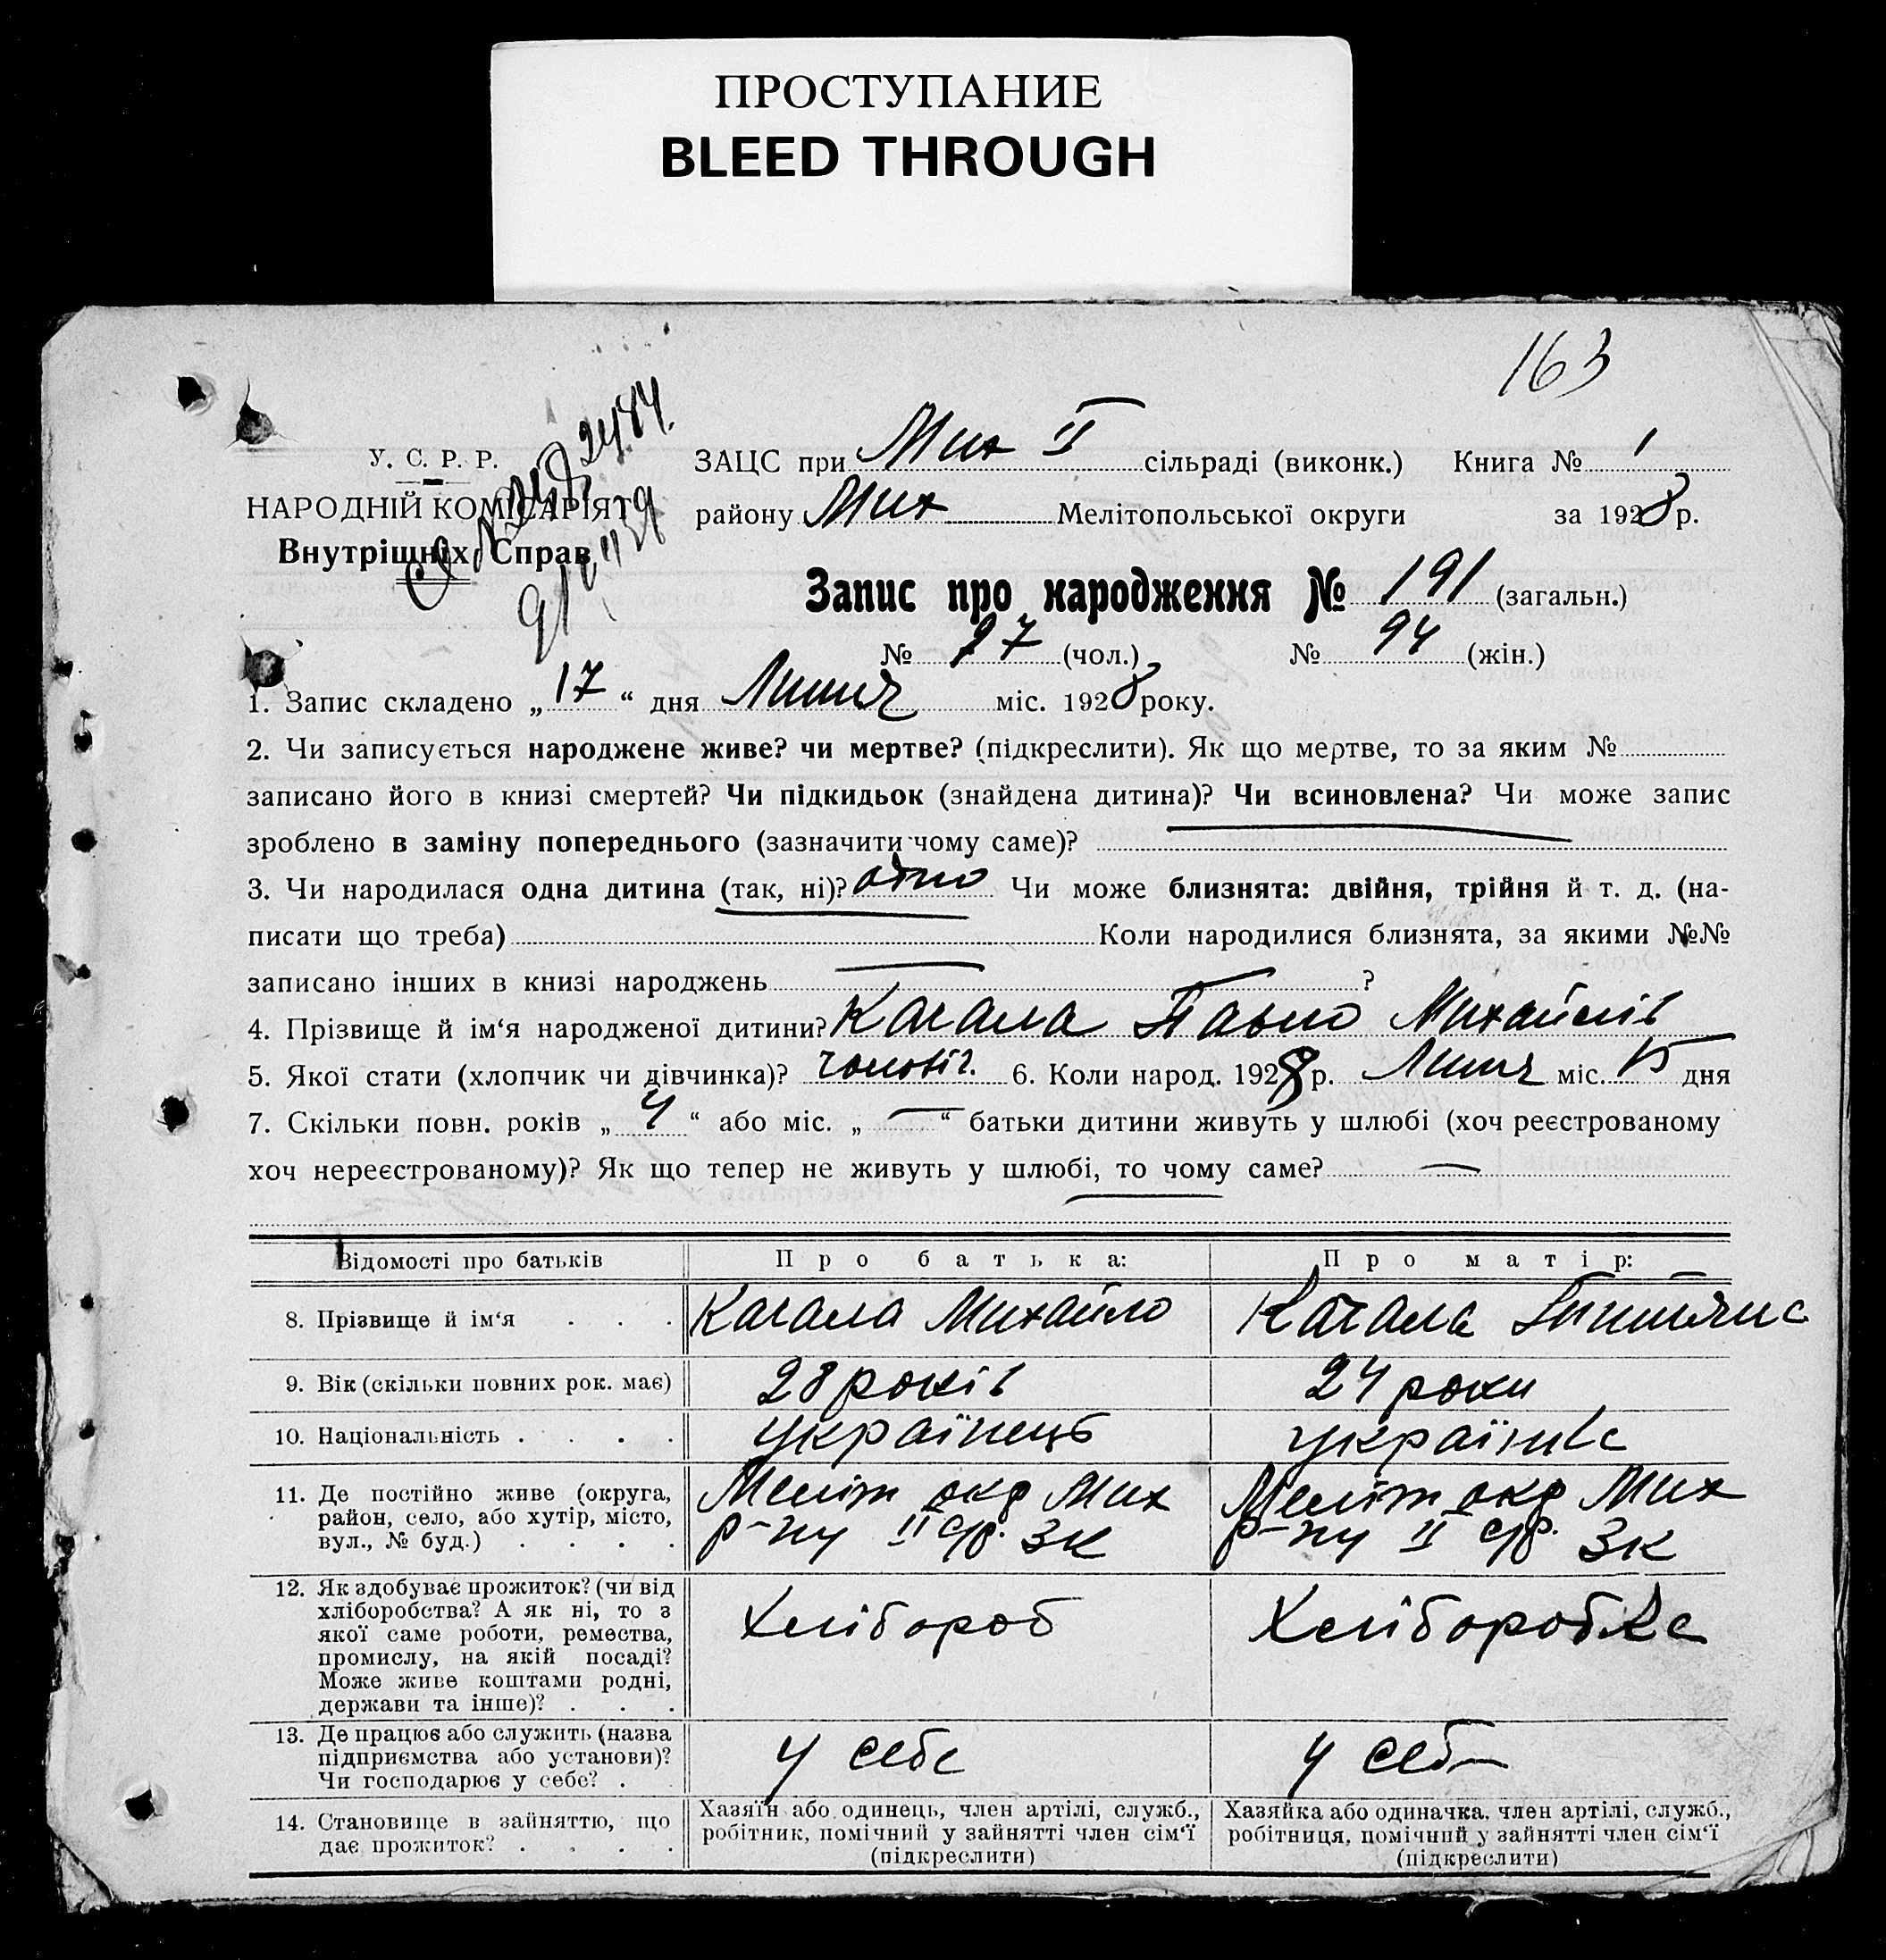 ПРОСТУПАНИЕ
BLEED THROUGH
163
У. С. Р. Р.
НАРОДНІЙ КОМІСАРІЯТ
Внутрішніх Справ
ЗАЦС при Мих II сільраді (виконк.) Книга № 1
району Мих Мелітопольської округи за 1928 р.
Запис про народження № 191 (загальн.)
№ 97 (чол.) № 94 (жін.)
1. Запис складено „ 17 “ дня Липня міс. 1928 року.
2. Чи записується народжене живе? чи мертве? (підкреслити). Як що мертве, то за яким №
записано його в книзі смертей? Чи підкидьок (знайдена дитина)? Чи всиновлена? Чи може запис
зроблено в заміну попереднього (зазначити чому саме)?
3. Чи народилася одна дитина (так, ні)? одно Чи може близнята: двійня, трійня й т. д. (на-
писати що треба) Коли народилися близнята, за якими №№
записано інших в книзі народжень ?
4. Прізвище й ім‘я народженої дитини? Качала Павло Михайлів
5. Якої стати (хлопчик чи дівчинка)? чоловіч. 6. Коли народ. 1928 р. Липня міс. 15 дня
7. Скільки повн. років „ 4 “ або міс. „ — “ батьки дитини живуть у шлюбі (хоч реєстрованому
хоч нереєстрованому)? Як що тепер не живуть у шлюбі, то чому саме? —
Відомості про батьків Про батька: Про матір:
8. Прізвище й ім‘я Качала Михайло Качала
9. Вік (скільки повних рок. має) 28 років 24 роки
10. Національність українець українка
11. Де постійно живе (округа, район, село, або хутір, місто, вул., № буд.)
Меліт окр Мих Меліт окр Мих
р-ну II с/р. ЗК р-ну II с/р. ЗК
12. Як здобуває прожиток? (чи від
хліборобства? А як ні, то з
якої саме роботи, ремества,
промислу, на якій посаді?
Може живе коштами родні,
держави та інше)?
Хлібороб Хліборобка
13. Де працює або служить (назва
підприємства або установи)?
Чи господарює у себе?
у себе у себе
14. Становище в зайняттю, що
дає прожиток?
Хазяїн або одинець, член артілі, служб.,
робітник, помічний у зайнятті член сім‘ї
(підкреслити)
Хазяйка або одиначка, член артілі, служб.,
робітниця, помічний у зайнятті член сім‘ї
(підкреслити)